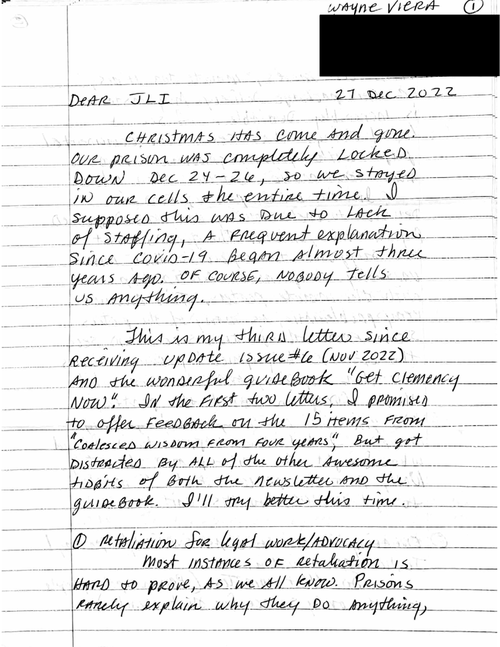 WAYNE VIERA ①
DEAR JLI 27 DEC 2022
CHRISTMAS HAS COME AND GONE.
OUR PRISON WAS COMPLETELY LOCKED
DOWN DEC 24-26, SO WE STAYED
IN OUR CELLS THE ENTIRE TIME. I
SUPPOSED THIS WAS DUE TO LACK
OF STAFFING, A FREQUENT EXPLANATION
SINCE COVID-19 BEGAN ALMOST THREE
YEARS AGO. OF COURSE, NOBODY TELLS
US ANYTHING.
THIS IS MY THIRD LETTER SINCE
RECEIVING UPDATE ISSUE #6 (NOV 2022)
AND THE WONDERFUL GUIDEBOOK "GET CLEMENCY
NOW". IN THE FIRST TWO LETTERS, I PROMISED
TO OFFER FEEDBACK ON THE 15 ITEMS FROM
"COALESCED WISDOM FROM FOUR YEARS", BUT GOT
DISTRACTED BY ALL OF THE OTHER AWESOME
TIDBITS OF BOTH THE NEWSLETTER AND THE
GUIDEBOOK. I'LL TRY BETTER THIS TIME.
① RETALIATION FOR LEGAL WORK/ADVOCACY
MOST INSTANCES OF RETALIATION IS
HARD TO PROVE, AS WE ALL KNOW. PRISONS
RARELY EXPLAIN WHY THEY DO ANYTHING,